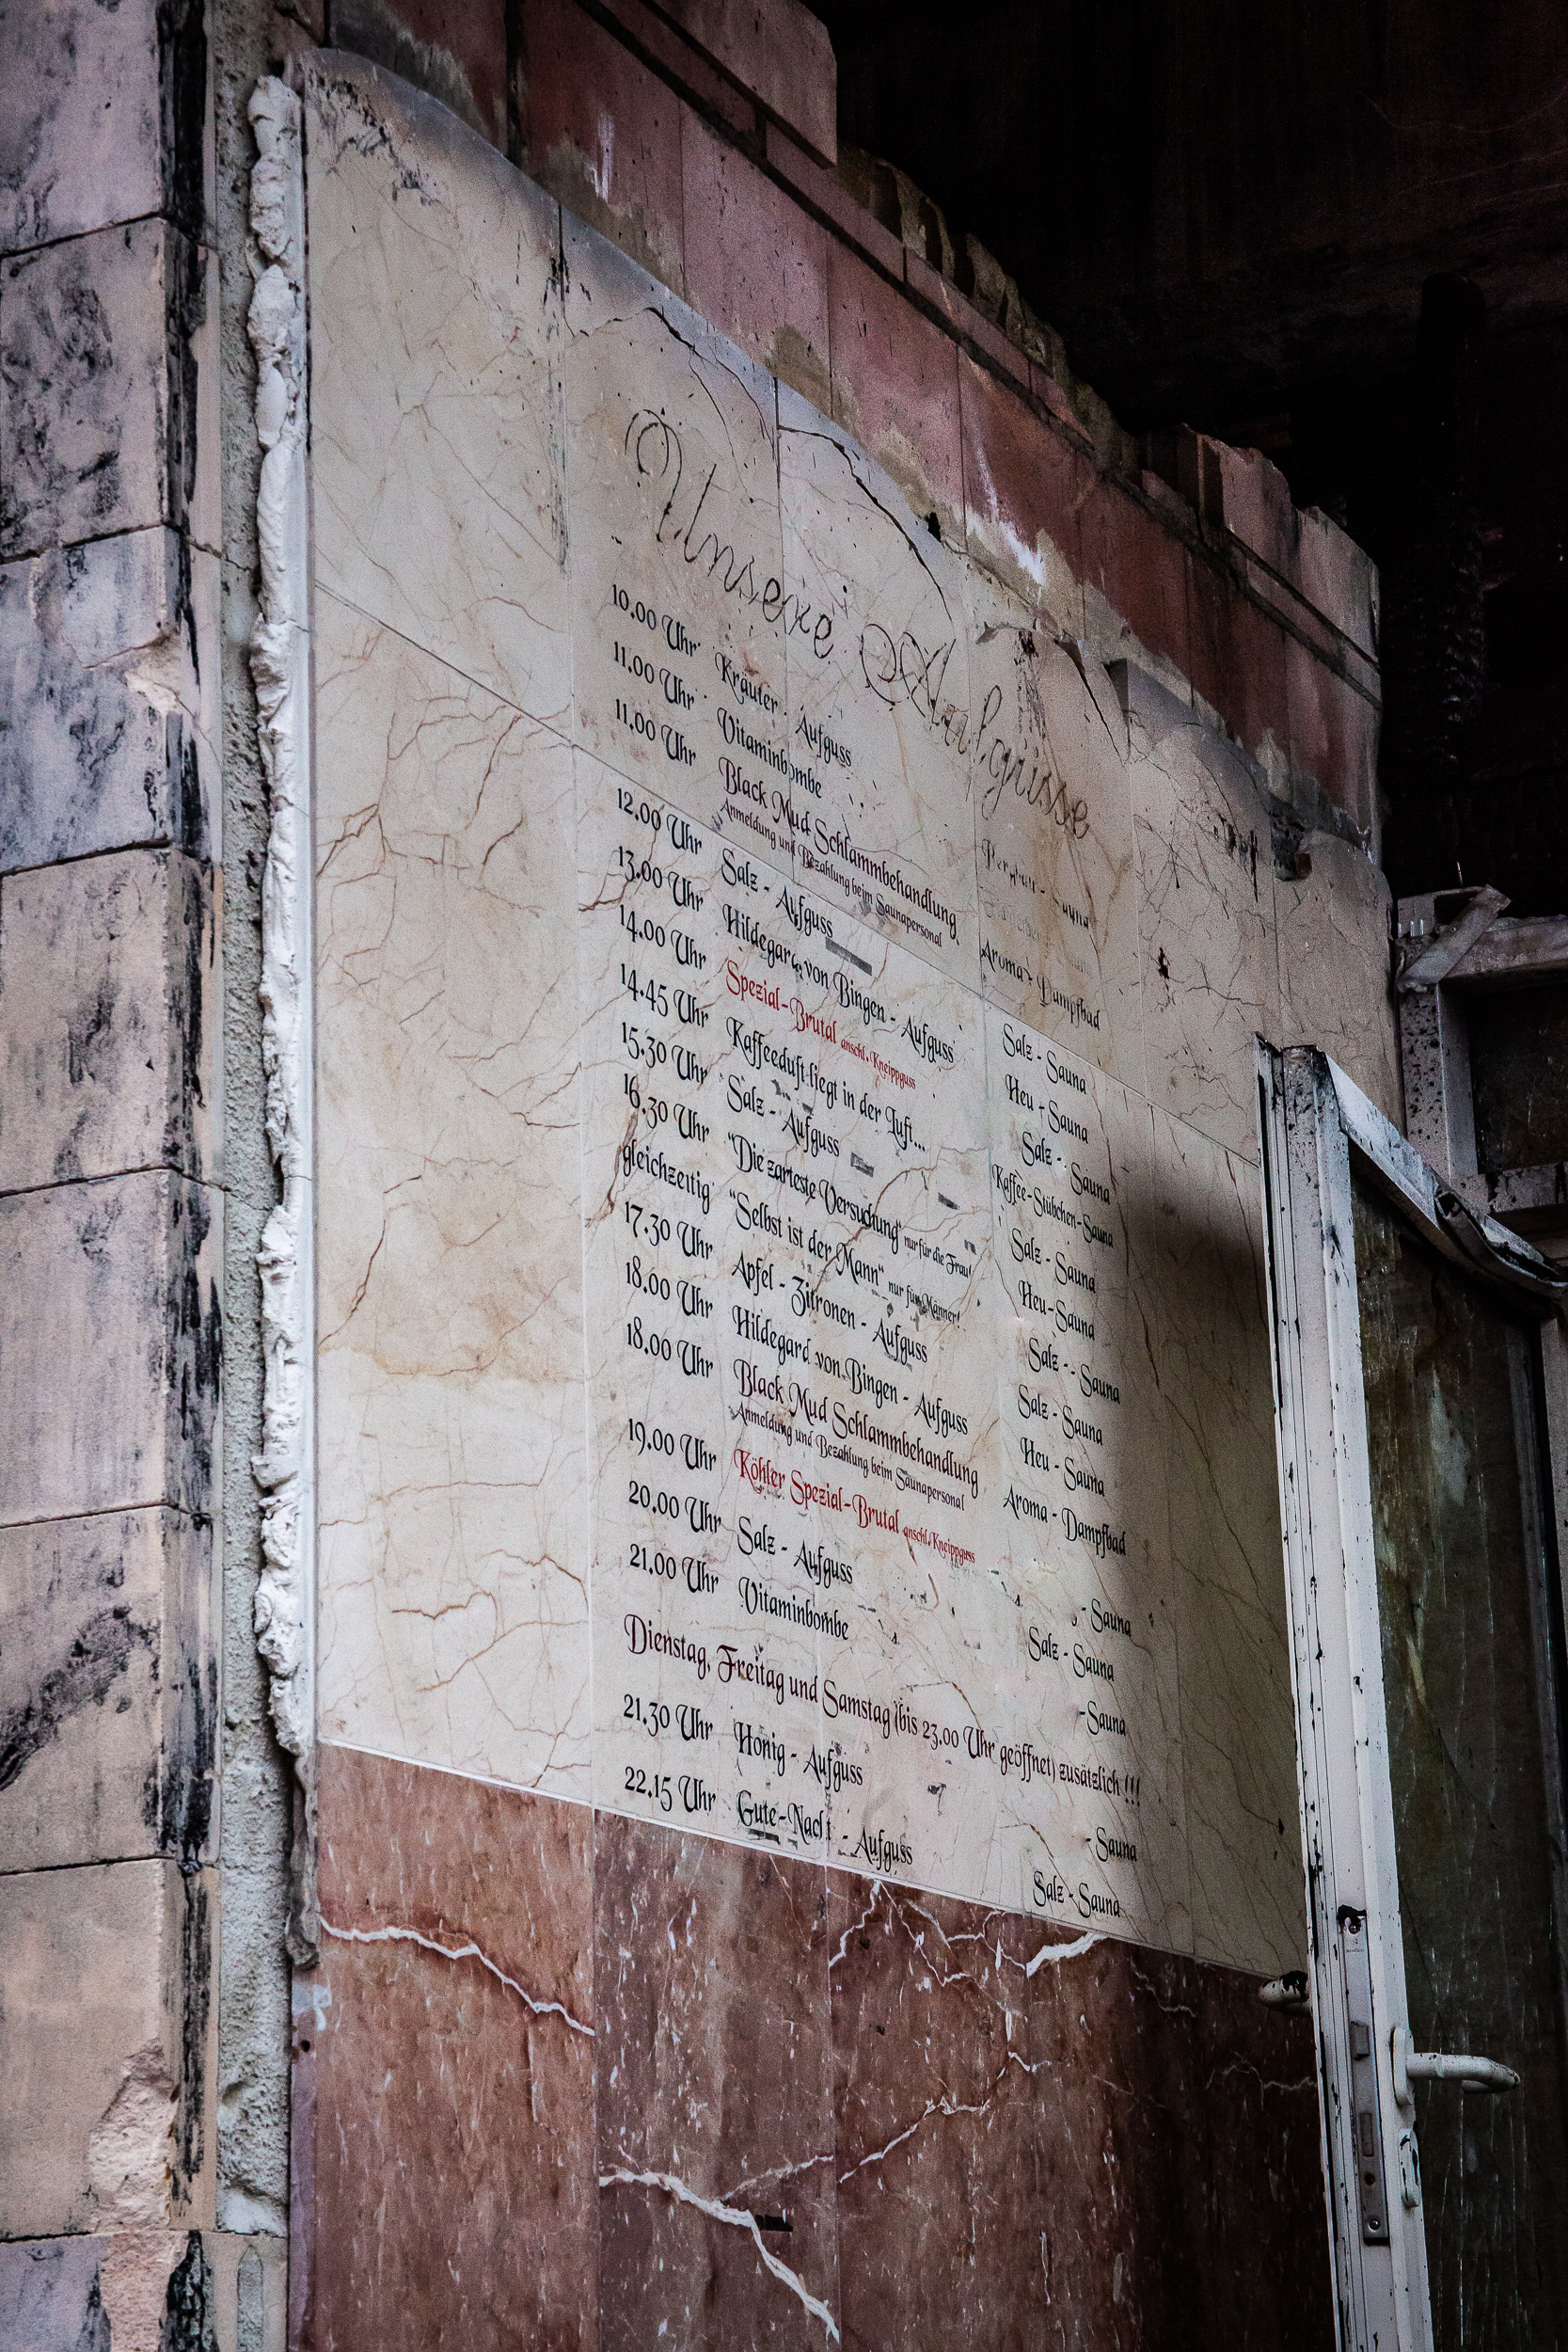 Unsere Aufgüsse
10.00 Uhr Kräuter - Aufguss - Sauna
11.00 Uhr Vitaminbombe
11.00 Uhr Black Mud Schlammbehandlung Aroma - Dampfbad
Anmeldung und Bezahlung beim Saunapersonal
12.00 Uhr Salz - Aufguss Salz - Sauna
13.00 Uhr Hildegard von Bingen - Aufguss Heu - Sauna
14.00 Uhr Spezial-Brutal anschl. Kneippguss Salz - Sauna
14.45 Uhr Kaffeeduft liegt in der Luft... Kaffee-Stübchen-Sauna
15.30 Uhr Salz - Aufguss Salz - Sauna
16.30 Uhr "Die zarteste Versuchung" nur für die Frau! Heu-Sauna
gleichzeitig "Selbst ist der Mann" nur für Männer! Salz - Sauna
17.30 Uhr Apfel - Zitronen - Aufguss Salz - Sauna
18.00 Uhr Hildegard von Bingen - Aufguss Heu - Sauna
18.00 Uhr Black Mud Schlammbehandlung Aroma - Dampfbad
Anmeldung und Bezahlung beim Saunapersonal
19.00 Uhr Köhler Spezial-Brutal anschl. Kneippguss - Sauna
20.00 Uhr Salz - Aufguss Salz - Sauna
21.00 Uhr Vitaminbombe -Sauna
Dienstag, Freitag und Samstag (bis 23.00 Uhr geöffnet) zusätzlich !!!
21.30 Uhr Honig - Aufguss - Sauna
22.15 Uhr Gute-Nacht - Aufguss Salz - Sauna